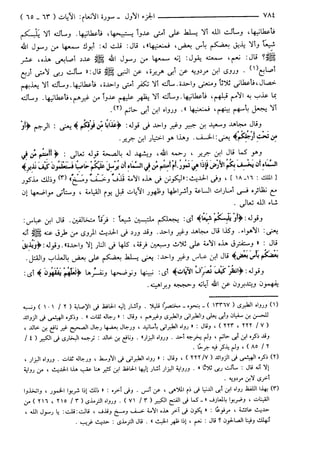 ٧٨٤ الجزء الأول - سورة الأنعام: الآيات (٦٣ - ٦٥)
فأعطانيها، وسألت الله ألا يسلط على أمتي عدواً يستبيحها، فأعطانيها. وسألته ألا يلبسكم
شيعاً وألا يذيق بعضكم بأس بعض، فمنعنيها». قال: قلت له: أبوك سمعها من رسول الله
ﷺ؟ قال: نعم، سمعته يقول: إنه سمعها من رسول الله ﷺ عدد أصابعي هذه، عشر
أصابع(١) - وروى ابن مردويه عن أبي هريرة، عن النبي ﷺ قال: «سألت ربي لأمتي أربع
خصال، فأعطاني ثلاثاً ومنعني واحدة. سألته ألا تكفر أمتي واحدة، فأعطانيها. وسألته ألا يعذبهم
بما عذب به الأمم قبلهم، فأعطانيها. وسألته ألا يظهر عليهم عدواً من غيرهم، فأعطانيها. وسألته
ألا يجعل بأسهم بينهم، فمنعنيها». ورواه ابن أبي حاتم (٢).
وقال مجاهد وسعيد بن جبير وغير واحد في قوله: ﴿عَذَابًا مِّن فَوْقِكُمْ﴾ يعني: الرجم ﴿أَوْ
مِن تَحْتِ أَرْجُلِكُمْ﴾ يعني: الخسف. وهذا هو اختيار ابن جرير.
وهو كما قال ابن جرير، رحمه الله، ويشهد له بالصحة قوله تعالى: ﴿أَأَمِنتُم مَّن فِي
السَّمَاءِ أَن يَخْسِفَ بِكُمُ الْأَرْضَ فَإِذَا هِيَ تَمُورُ. أَمْ أَمِنتُم مَّن فِي السَّمَاءِ أَن يُرْسِلَ عَلَيْكُمْ حَاصِبًا فَسَتَعْلَمُونَ كَيْفَ نَذِيرِ﴾
[الملك: ١٦، ١٨]. وفي الحديث: «ليكونن في هذه الأمة قذف وخسف ومسخ»(٣) وذلك مذكور
مع نظائره في أمارات الساعة وأشراطها وظهور الآيات قبل يوم القيامة، وستأتي مواضعها إن
شاء الله تعالى.
وقوله: ﴿أَوْ يَلْبِسَكُمْ شِيَعًا﴾ أي: يجعلكم ملتبسين شيعاً: فرقاً متخالفين. قال ابن عباس:
يعني: الأهواء. وكذا قال مجاهد وغير واحد. وقد ورد في الحديث المروي من طرق عنه ﷺ أنه
قال: «وستفترق هذه الأمة على ثلاث وسبعين فرقة، كلها في النار إلا واحدة». وقوله: ﴿وَيُذِيقَ
بَعْضَكُم بَأْسَ بَعْضٍ﴾ قال ابن عباس وغير واحد: يعني يسلط بعضكم على بعض بالعذاب والقتل.
وقوله: ﴿انظُرْ كَيْفَ نُصَرِّفُ الْآيَاتِ﴾ أي: نبينها ونوضحها ونفسرها ﴿لَعَلَّهُمْ يَفْقَهُونَ﴾ أي:
يفهمون ويتدبرون عن الله آياته وحججه وبراهينه.
(١) ورواه الطبري (١٣٣٦٧) - بنحوه - مختصراً قليلا. وأشار إليه الحافظ في الإصابة (٢ / ١٠١) ونسبه
للحسن بن سفيان وأبي يعلى والطبراني والطبري وغيرهم، وقال: «رجاله ثقات». وذكره الهيثمي في الزوائد
(٧ / ٢٢٢، ٢٢٣)، وقال: «رواه الطبراني بأسانيد، ورجال بعضها رجال الصحيح غير نافع بن خالد،
وقد ذكره ابن أبي حاتم، ولم يجرحه أحد. ورواه البزار». ونافع بن خالد: ترجمه البخاري في الكبير (٤ /
٢ / ٨٥)، ولم يذكر فيه جرحاً.
(٢) ذكره الهيثمي في الزوائد (٢٢٢/٧)، وقال: «رواه الطبراني في الأوسط، ورجاله ثقات. ورواه البزار،
إلا أنه قال: سألت ربي ثلاثاً». ورواية البزار أشار إليها الحافظ ابن كثير هنا عقب هذا الحديث، من رواية
أخرى لابن مردويه.
(٣) بهذا اللفظ رواه ابن أبي الدنيا في ذم الملاهي، عن أنس. وفي آخره: «وذلك إذا شربوا الخمور، واتخذوا
القينات، وضربوا بالمعازف» - كما في الفتح الكبير (٣ / ٧١). ورواه الترمذي (٣ / ٢١٥، ٢١٦) من
حديث عائشة، مرفوعاً: «يكون في آخر هذه الأمة خسف ومسخ وقذف، قالت: قلت: يا رسول الله،
أنهلك وفينا الصالحون؟ قال: نعم، إذا ظهر الخبث». قال الترمذي: حديث غريب.